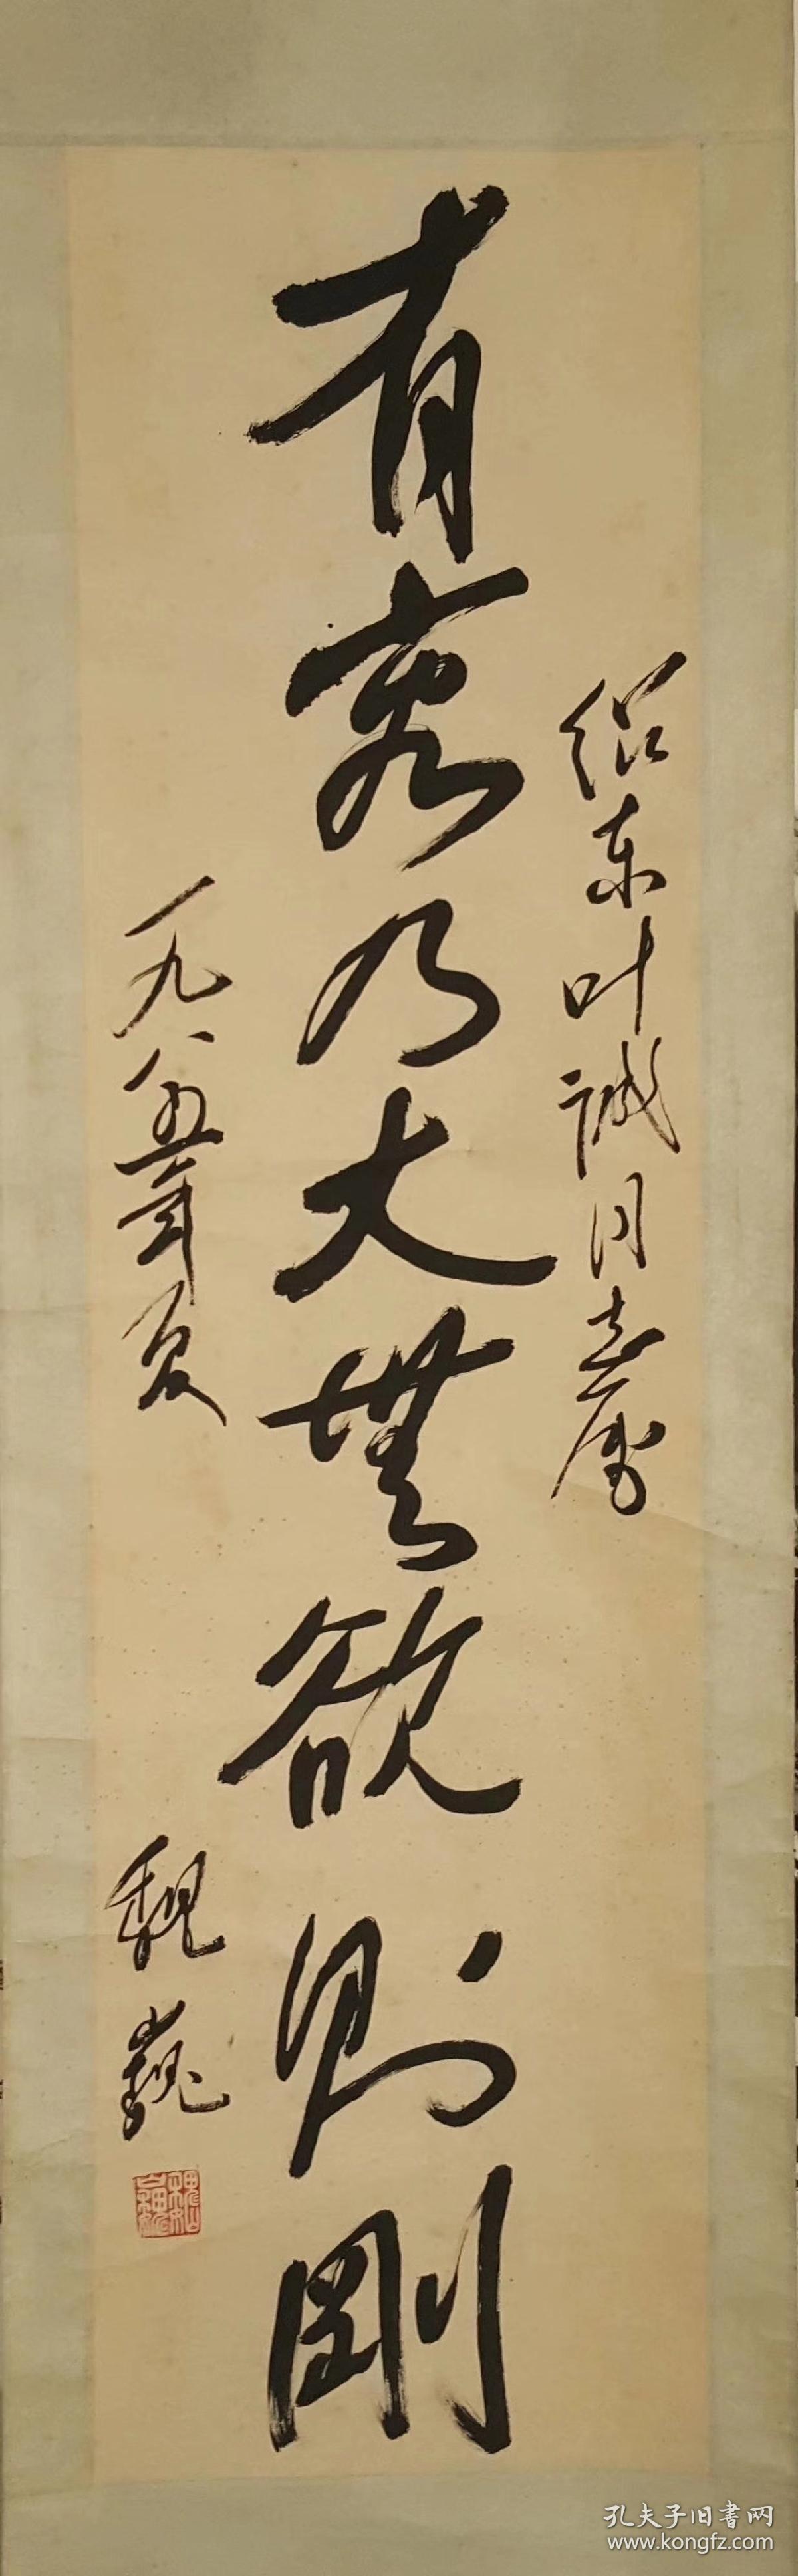 绍东叶诚同志属
有容乃大無欲则剛
一九八五年夏
魏巍
孔夫子旧書网
www.kongfz.com